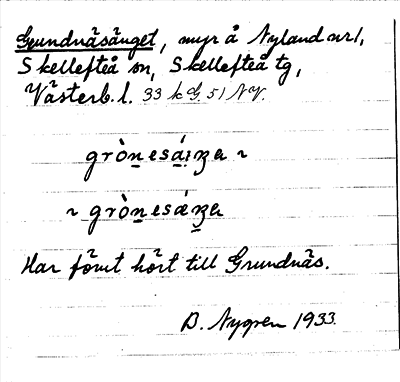 Grundnäsänget, myr å Nyland nr 1,
Skellefteå sn, Skellefteå tg,
Västerb. l. 33 k G 51 NV.
gròn esá:ŋa ~
~ gròn esǽŋa
Har förut hört till Grundnäs.
B. Nygren 1933.